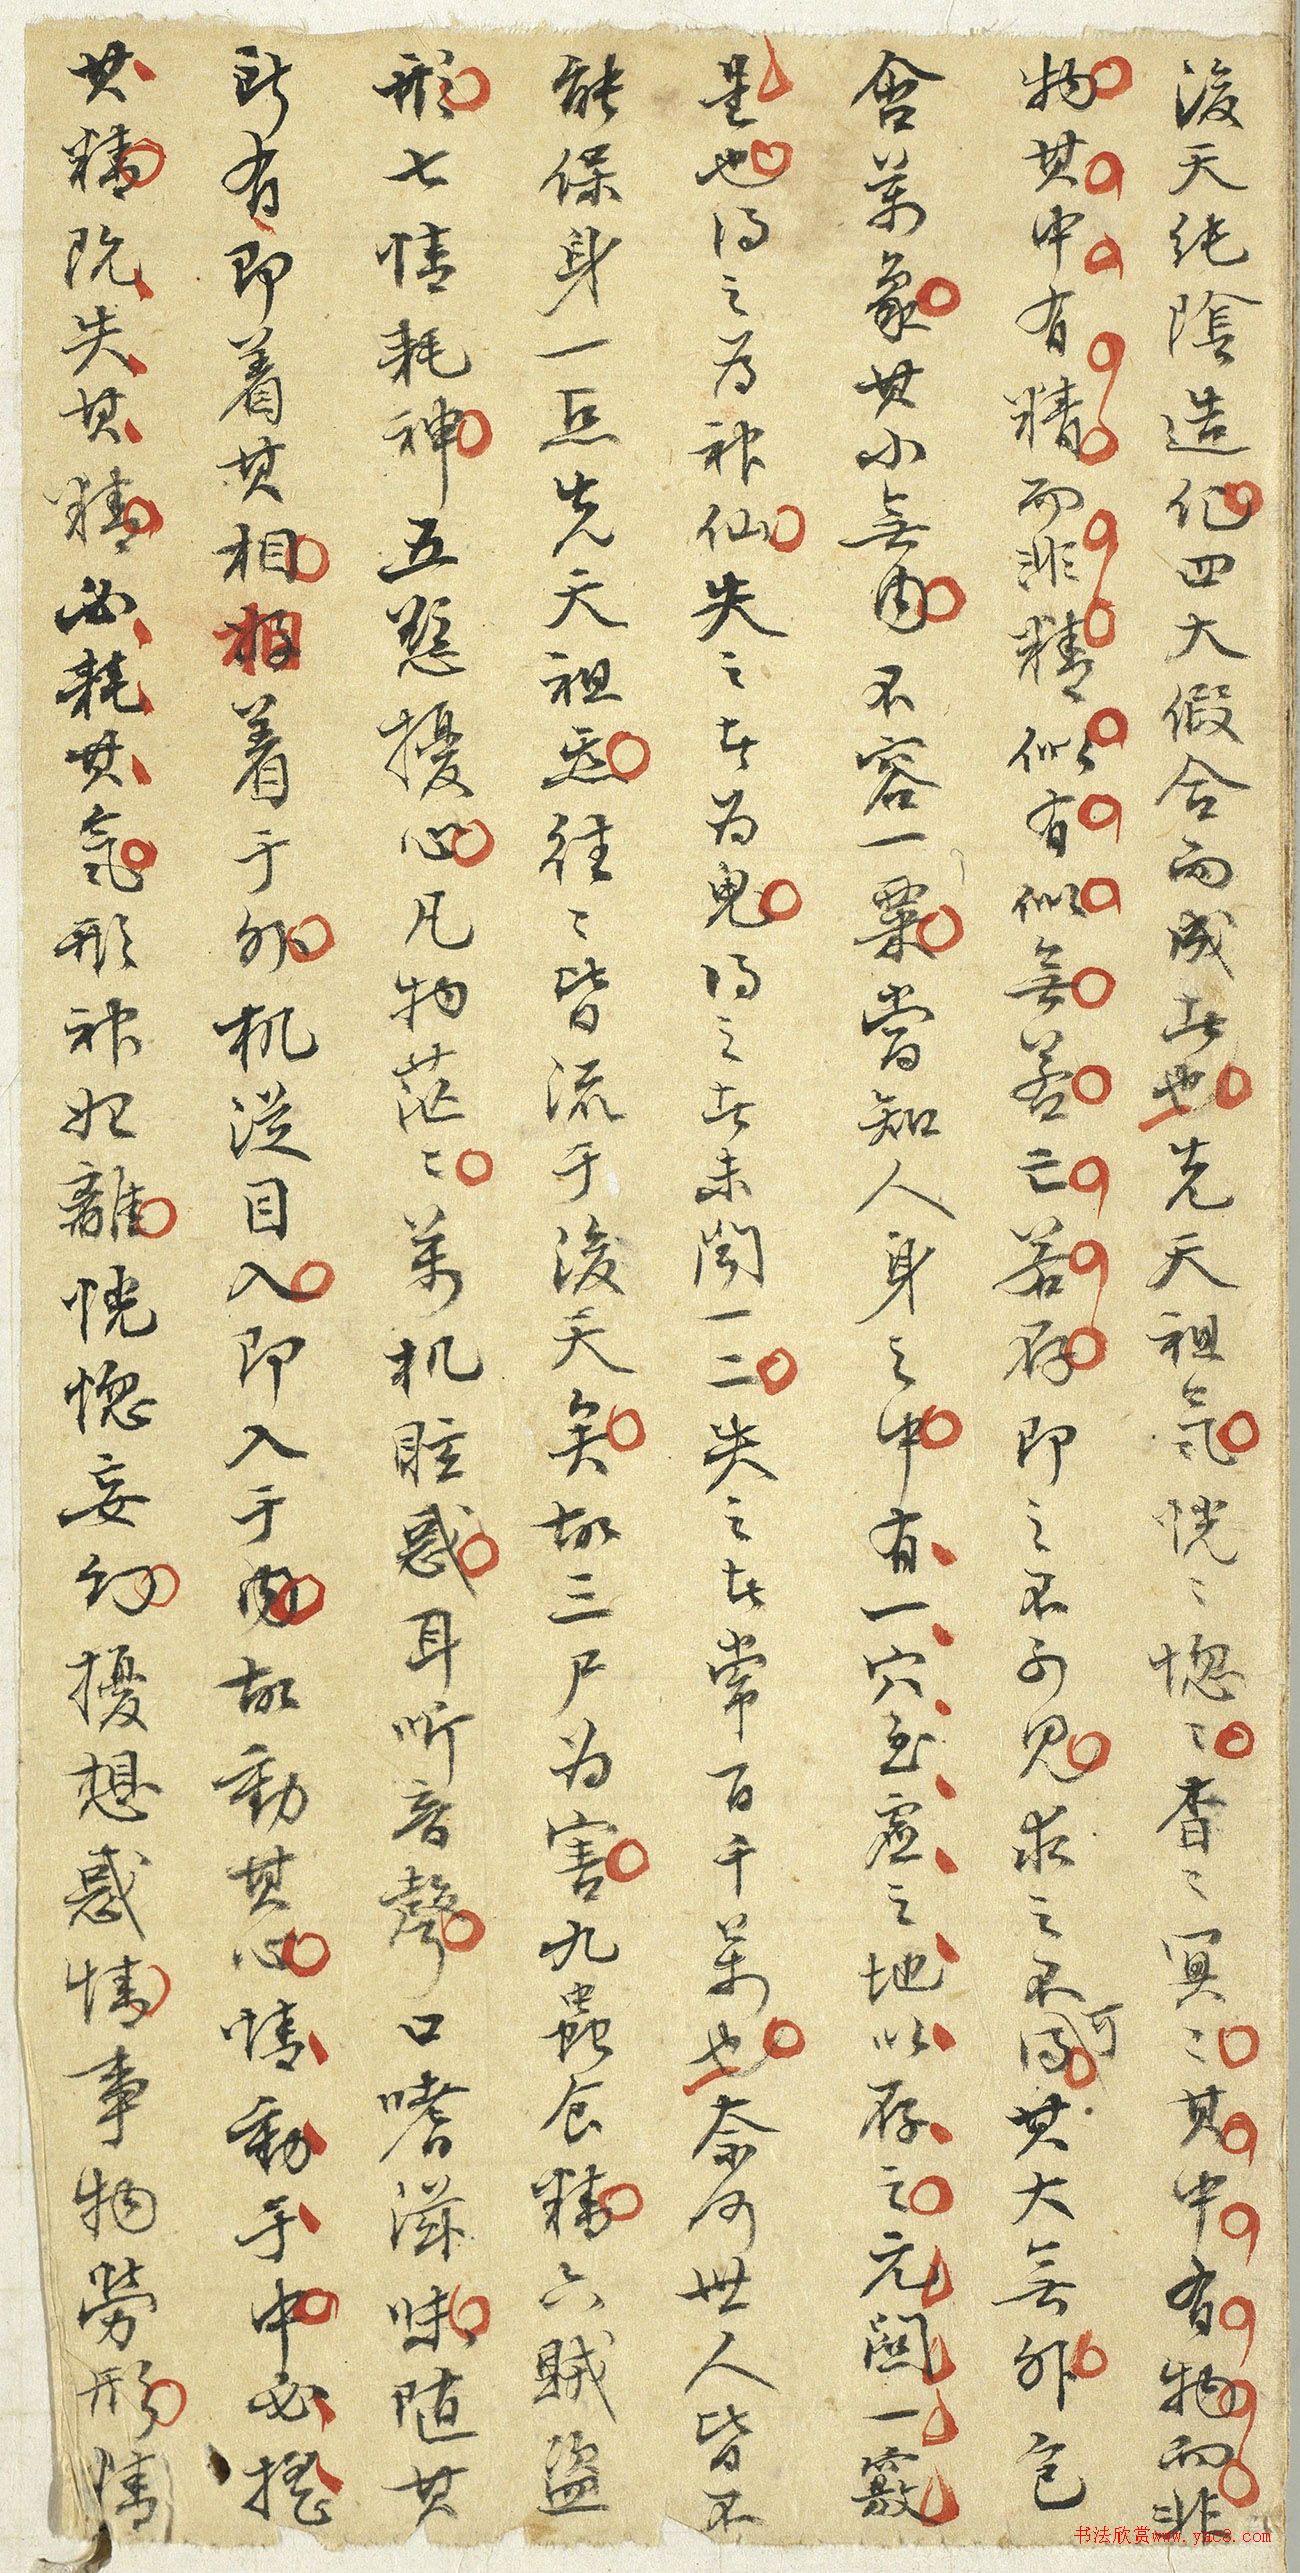 後天純陰造化四大假合而成者也先天祖氣恍〻惚〻杳〻冥〻其中有物而非
物其中有精而非精似有似無若亡若存即之不可見求之不可得其大無外包
含萬象其小無內不容一粟當知人身之中有一穴至虛之地以存之元關一竅
是也得之為神仙失之者为鬼得之者未聞一二失之者常百千萬也奈何世人皆不
能保身一点先天祖炁往〻皆流于後天矣故三尸为害九蟲食精六賊盜
形七情耗神五慾擾心凡物茫〻萬机眩惑耳听音聲口嗜滋味随其
所有即着其相相着于外机從目入即入于內故動其心情動于中必搖
其精既失其精必耗其氣形神妃離恍惚妄幻擾想惑情事物勞形情
书法欣赏www.yac8.com